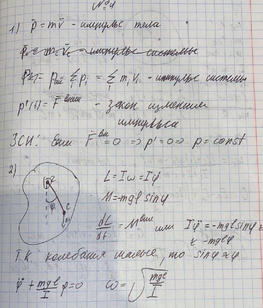 №1
1) p̄ = mv̄ - импульс тела
p = Σ pᵢ = Σ mᵢ vᵢ - импульс системы
p'(t) = F̄ внеш - закон изменения
импульса
ЗСИ: Если F̄ внеш = 0 => p' = 0 => p = const
2)
L = Iω = Iφ̇
M = mgl sinφ
dL/dt = M внеш или Iφ̈ = -mgl sinφ ≈
≈ -mglφ
Т.к. колебания малые, то sinφ ≈ φ
φ̈ + mgl/I φ = 0 ω = √(mgl/I)